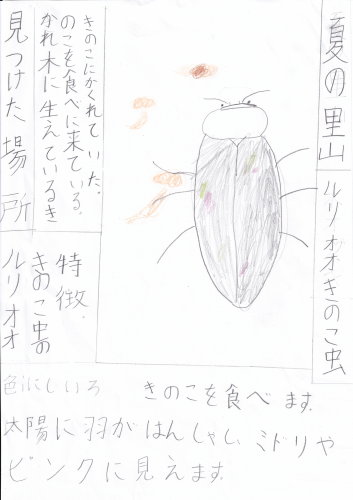 夏の里山
ルリオオきのこ虫
見つけた場所
かれ木に生えているき
のこを食べに来ている。
きのこにかくれていた。
ルリオオ
きのこ虫の
特徴
色にじいろ きのこを食べます。
太陽に羽がはんしゃしミドリや
ピンクに見えます。